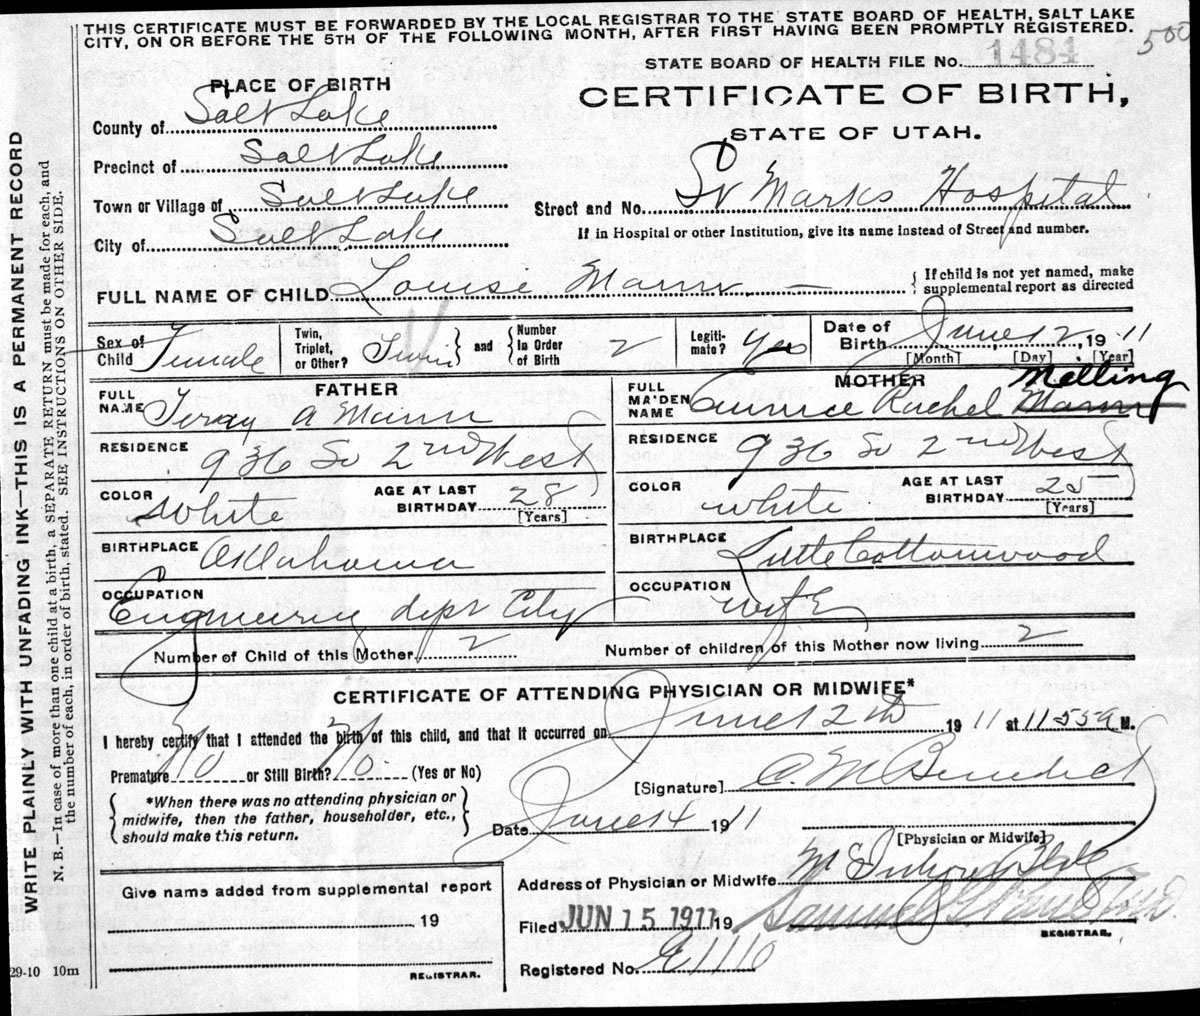 THIS CERTIFICATE MUST BE FORWARDED BY THE LOCAL REGISTRAR TO THE STATE BOARD OF HEALTH, SALT LAKE
CITY, ON OR BEFORE THE 5TH OF THE FOLLOWING MONTH, AFTER FIRST HAVING BEEN PROMPTLY REGISTERED.
500
STATE BOARD OF HEALTH FILE No. 1484
PLACE OF BIRTH
CERTIFICATE OF BIRTH,
STATE OF UTAH.
County of Salt Lake
Precinct of Salt Lake
Town or Village of Salt Lake
City of Salt Lake
Street and No. St Marks Hospital
If in Hospital or other Institution, give its name instead of Street and number.
FULL NAME OF CHILD Louise Mann
{If child is not yet named, make
supplemental report as directed
Sex of Child Female
Twin, Triplet, or Other? Twin } and { Number In Order of Birth 2
Legitimate? Yes
Date of Birth June 12 1911
[Month] [Day] [Year]
FATHER
FULL NAME A Mann
RESIDENCE 936 So 2nd West
COLOR White
AGE AT LAST BIRTHDAY 28
[Years]
BIRTHPLACE Oklahoma
OCCUPATION Engineering dept City
MOTHER
FULL MAIDEN NAME Rachel Mann Melling
RESIDENCE 936 So 2nd West
COLOR White
AGE AT LAST BIRTHDAY
[Years]
BIRTHPLACE Little Cottonwood
OCCUPATION wife
Number of Child of this Mother 2
Number of children of this Mother now living 2
CERTIFICATE OF ATTENDING PHYSICIAN OR MIDWIFE*
I hereby certify that I attended the birth of this child, and that it occurred on June 12th 1911 at 11-55 a M.
Premature No or Still Birth? No. (Yes or No)
{*When there was no attending physician or
midwife, then the father, householder, etc.,
should make this return.}
[Signature] A. M Benedict
Date June 14 1911
[Physician or Midwife]
Address of Physician or Midwife
Give name added from supplemental report
19
REGISTRAR.
Filed JUN 15 1911 19
REGISTRAR.
Registered No. 1110
WRITE PLAINLY WITH UNFADING INK—THIS IS A PERMANENT RECORD
N. B.—In case of more than one child at a birth, a SEPARATE RETURN must be made for each, and
the number of each, in order of birth, stated. SEE INSTRUCTIONS ON OTHER SIDE.
29-10 10m